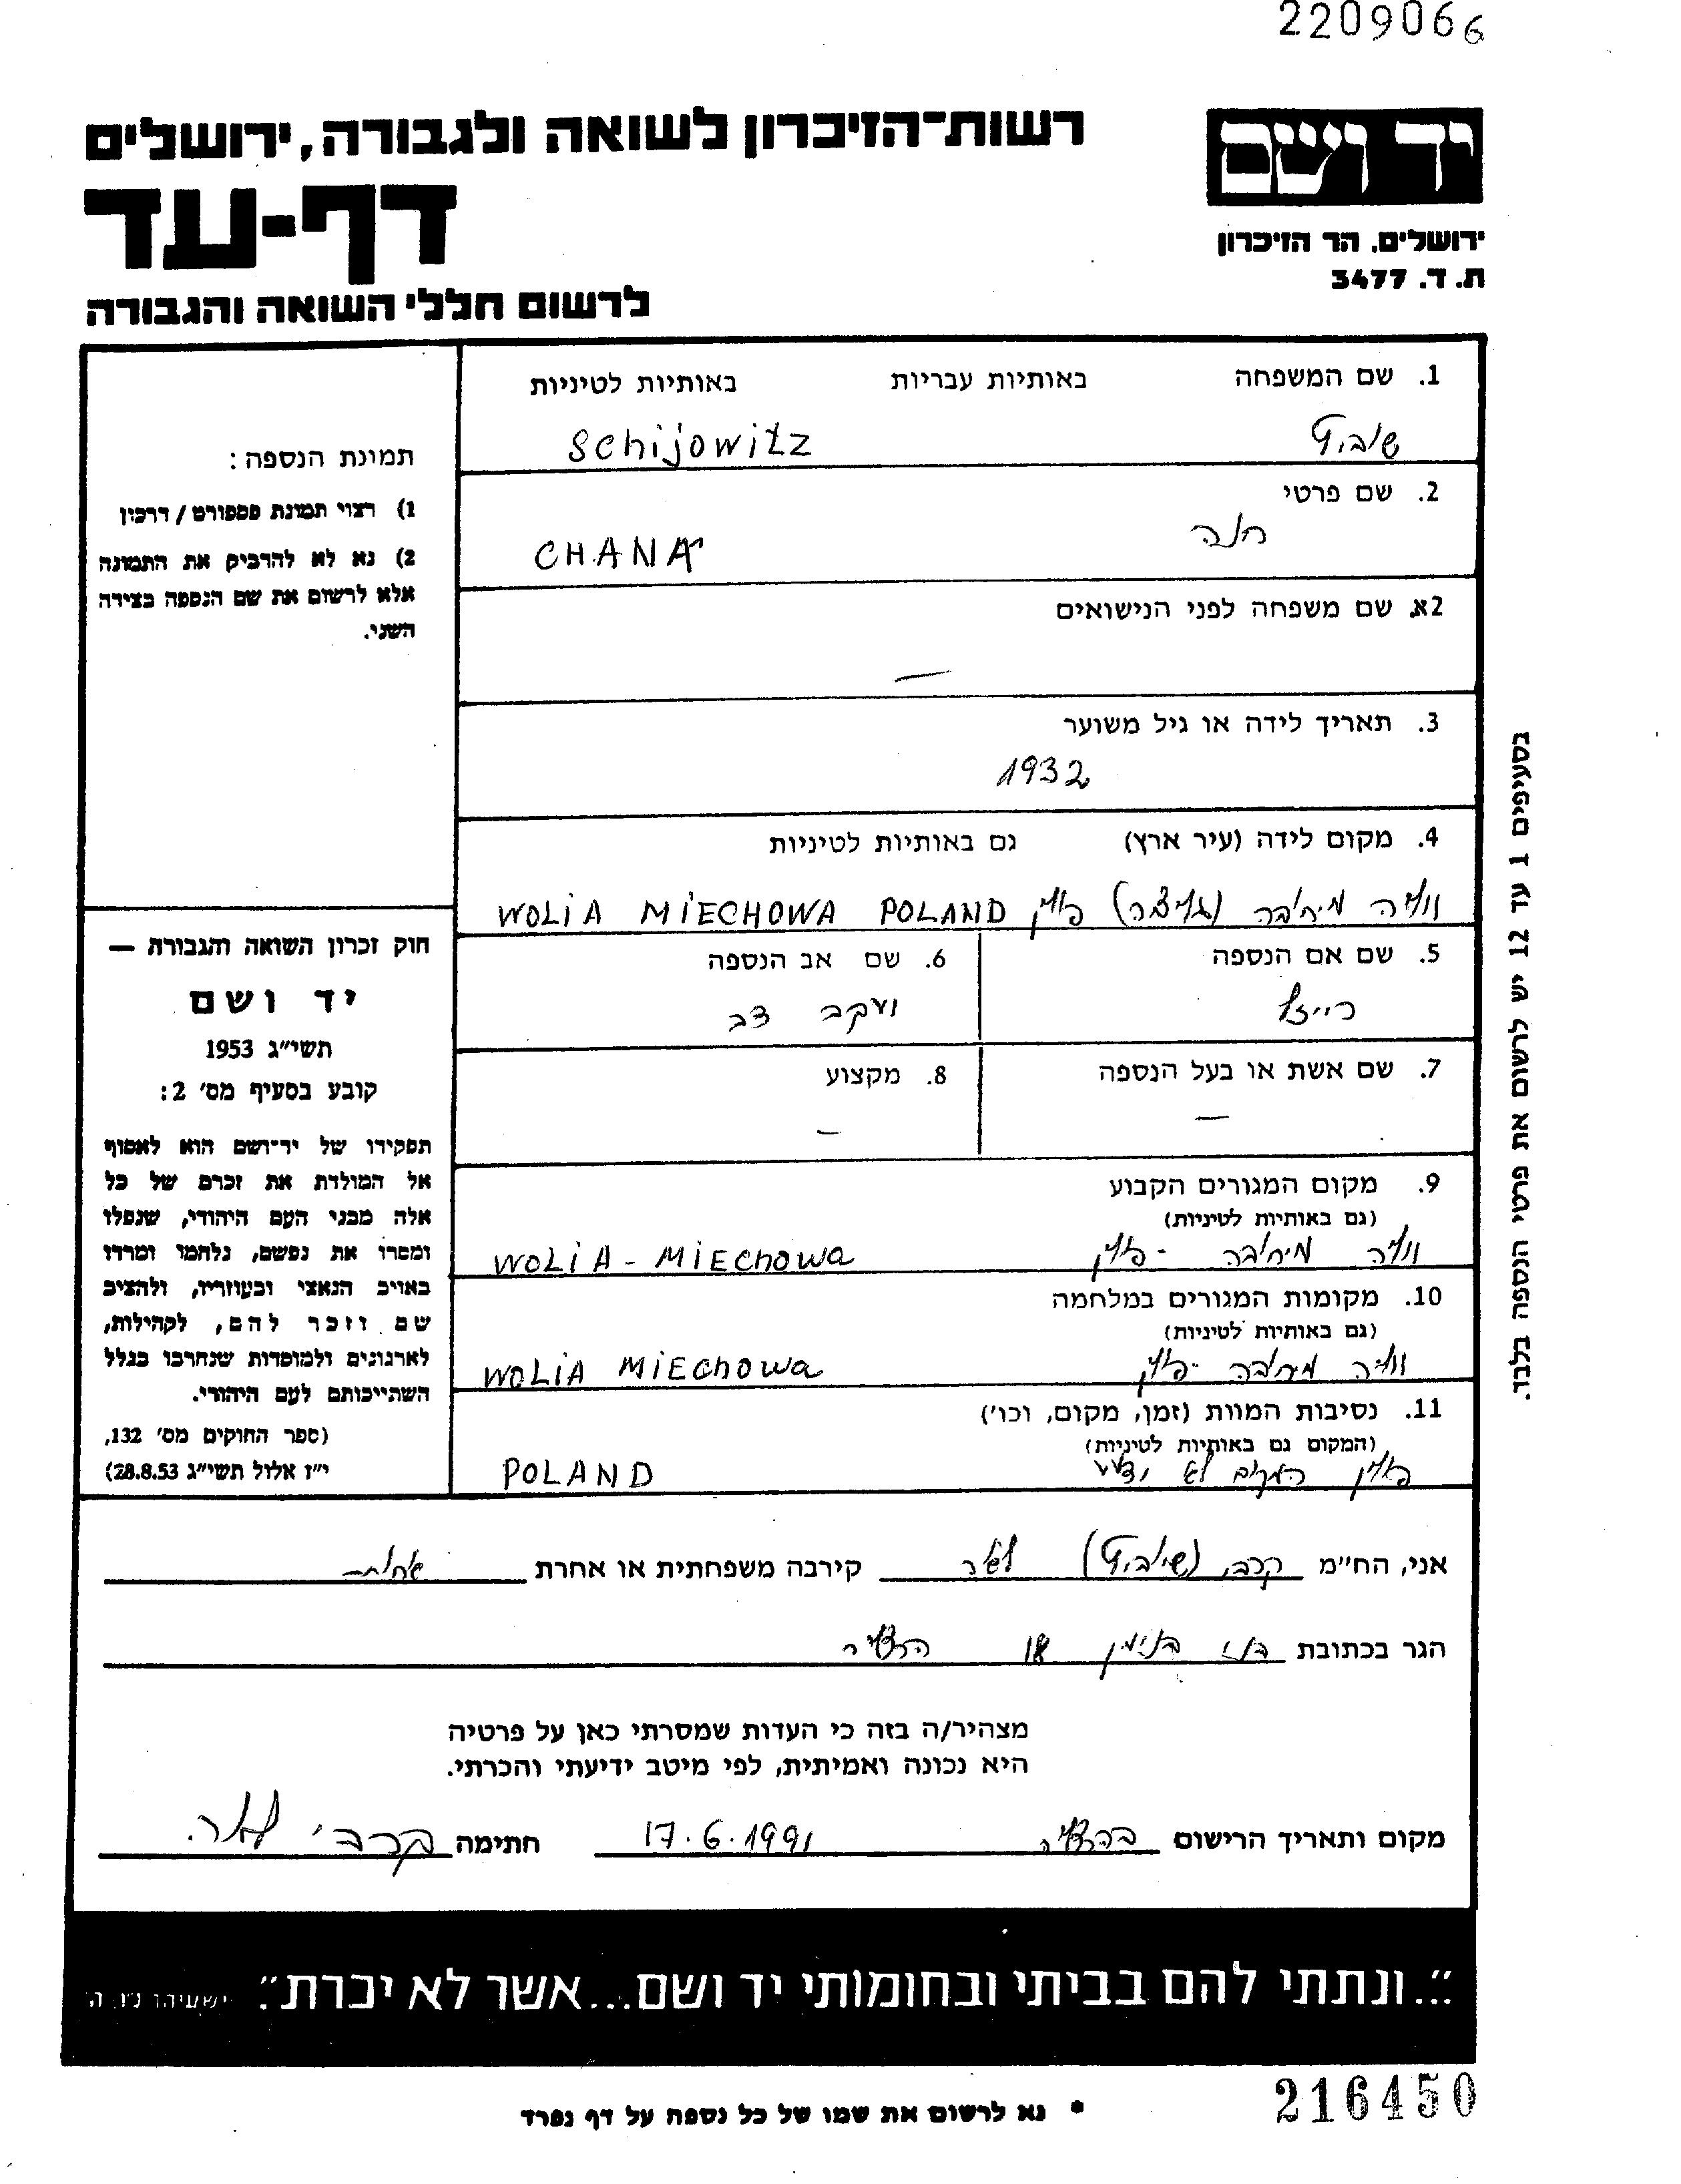 2209066
יד ושם
רשות־הזיכרון לשואה ולגבורה, ירושלים
דף-עד
ירושלים. הר הזיכרון
ת. ד. 3477
לרשום חללי השואה והגבורה
1. שם המשפחה באותיות עבריות באותיות לטיניות
Schijowitz
2. שם פרטי
חנה CHANA
2א. שם משפחה לפני הנישואים
—
3. תאריך לידה או גיל משוער
1932
4. מקום לידה (עיר ארץ) גם באותיות לטיניות
מיחובה פולין WOLiA MiECHOWA POLAND
5. שם אם הנספה 6. שם אב הנספה
רייזל יעקב דב
7. שם אשת או בעל הנספה 8. מקצוע
— —
9. מקום המגורים הקבוע
(גם באותיות לטיניות)
מיחובה - פולין WOLiA - MiEchowa
10. מקומות המגורים במלחמה
(גם באותיות לטיניות)
מיחובה - פולין WOLiA MiEchowa
11. נסיבות המוות (זמן, מקום, וכו')
(המקום גם באותיות לטיניות)
פולין המקום לא ידוע POLAND
תמונת הנספה:
1) רצוי תמונת פספורט / דרכון
2) נא לא להדביק את התמונה
אלא לרשום את שם הנספה בצידה
השני.
חוק זכרון השואה והגבורה —
יד ושם
תשי"ג 1953
קובע בסעיף מס' 2:
תפקידו של יד־ושם הוא לאסוף
אל המולדת את זכרם של כל
אלה מבני העם היהודי, שנפלו
ומסרו את נפשם, נלחמו ומרדו
באויב הנאצי ובעוזריו, ולהציב
שם וזכר להם, לקהילות,
לארגונים ולמוסדות שנחרבו בגלל
השתייכותם לעם היהודי.
(ספר החוקים מס' 132,
י"ז אלול תשי"ג 28.8.53)
בסעיפים 1 עד 12 יש לרשום את פרטי הנספה בלבד.
אני, הח"מ קירבה משפחתית או אחרת אחות
הגר בכתובת 18 הרצליה
מצהיר/ה בזה כי העדות שמסרתי כאן על פרטיה
היא נכונה ואמיתית, לפי מיטב ידיעתי והכרתי.
מקום ותאריך הרישום בהרצליה 17.6.1991 חתימה
"...ונתתי להם בביתי ובחומותי יד ושם...אשר לא יכרת". ישעיהו נ"ו, ה'
* נא לרשום את שמו של כל נספה על דף נפרד
216450